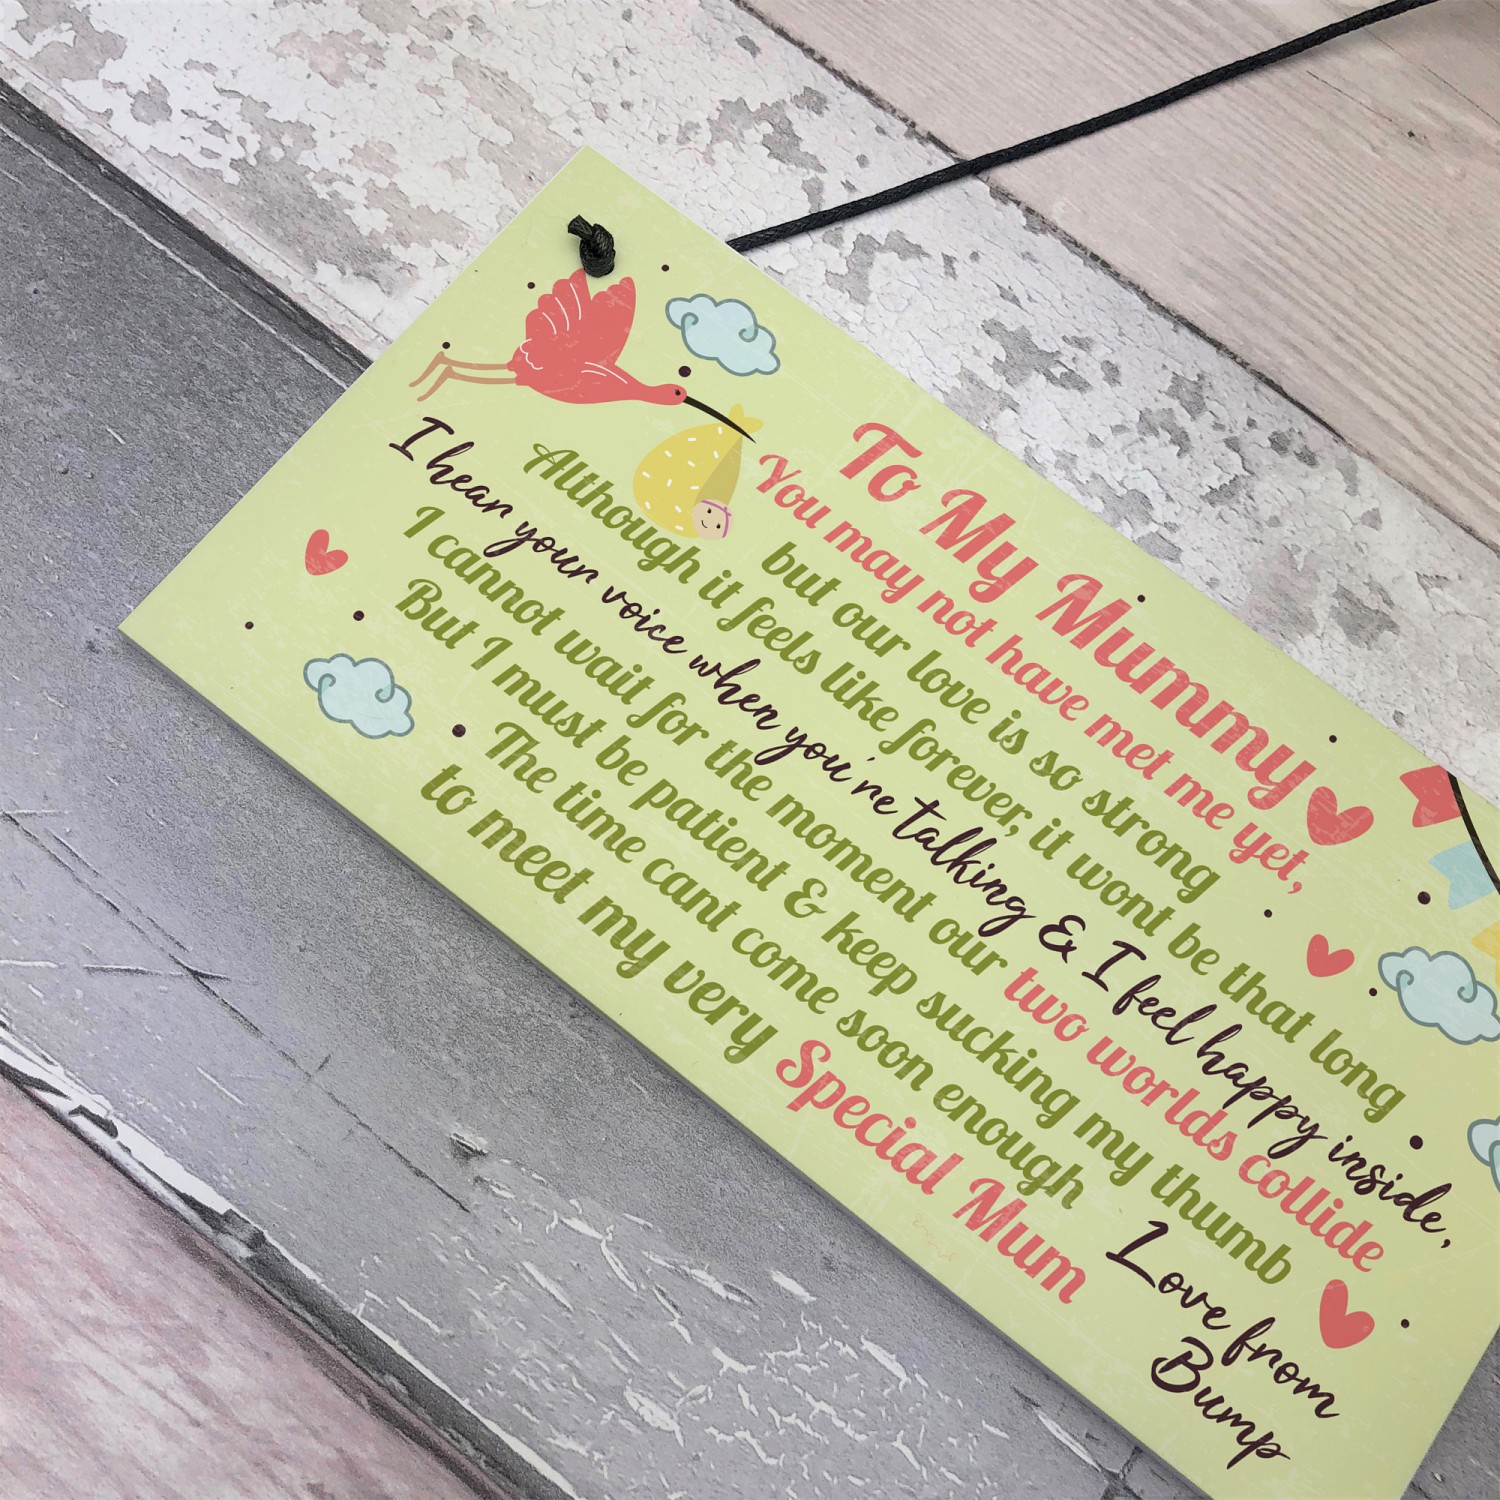 To My Mummy
You may not have met me yet,
but our love is so strong
Although it feels like forever, it wont be that long
I hear your voice when you're talking & I feel happy inside,
I cannot wait for the moment our two worlds collide
But I must be patient & keep sucking my thumb
The time cant come soon enough
to meet my very Special Mum
Love from
Bump